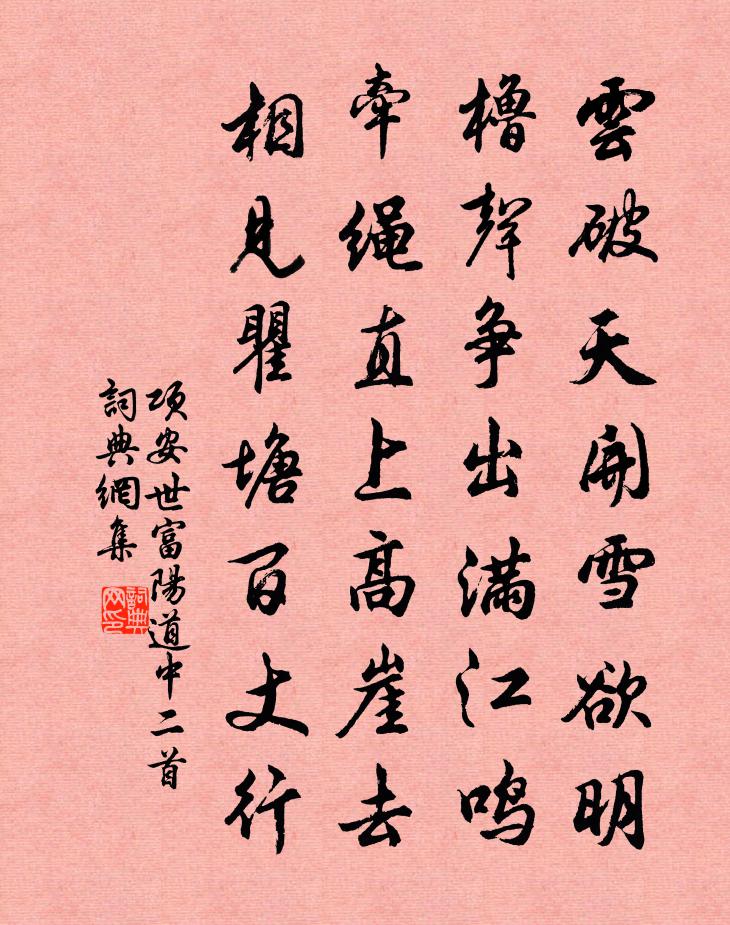 雲破天開雪欲明
櫓聲争出滿江鳴
牽繩直上高崖去
相見瞿塘百丈行
項安世富陽道中二首
詞典網集
詞典
网印